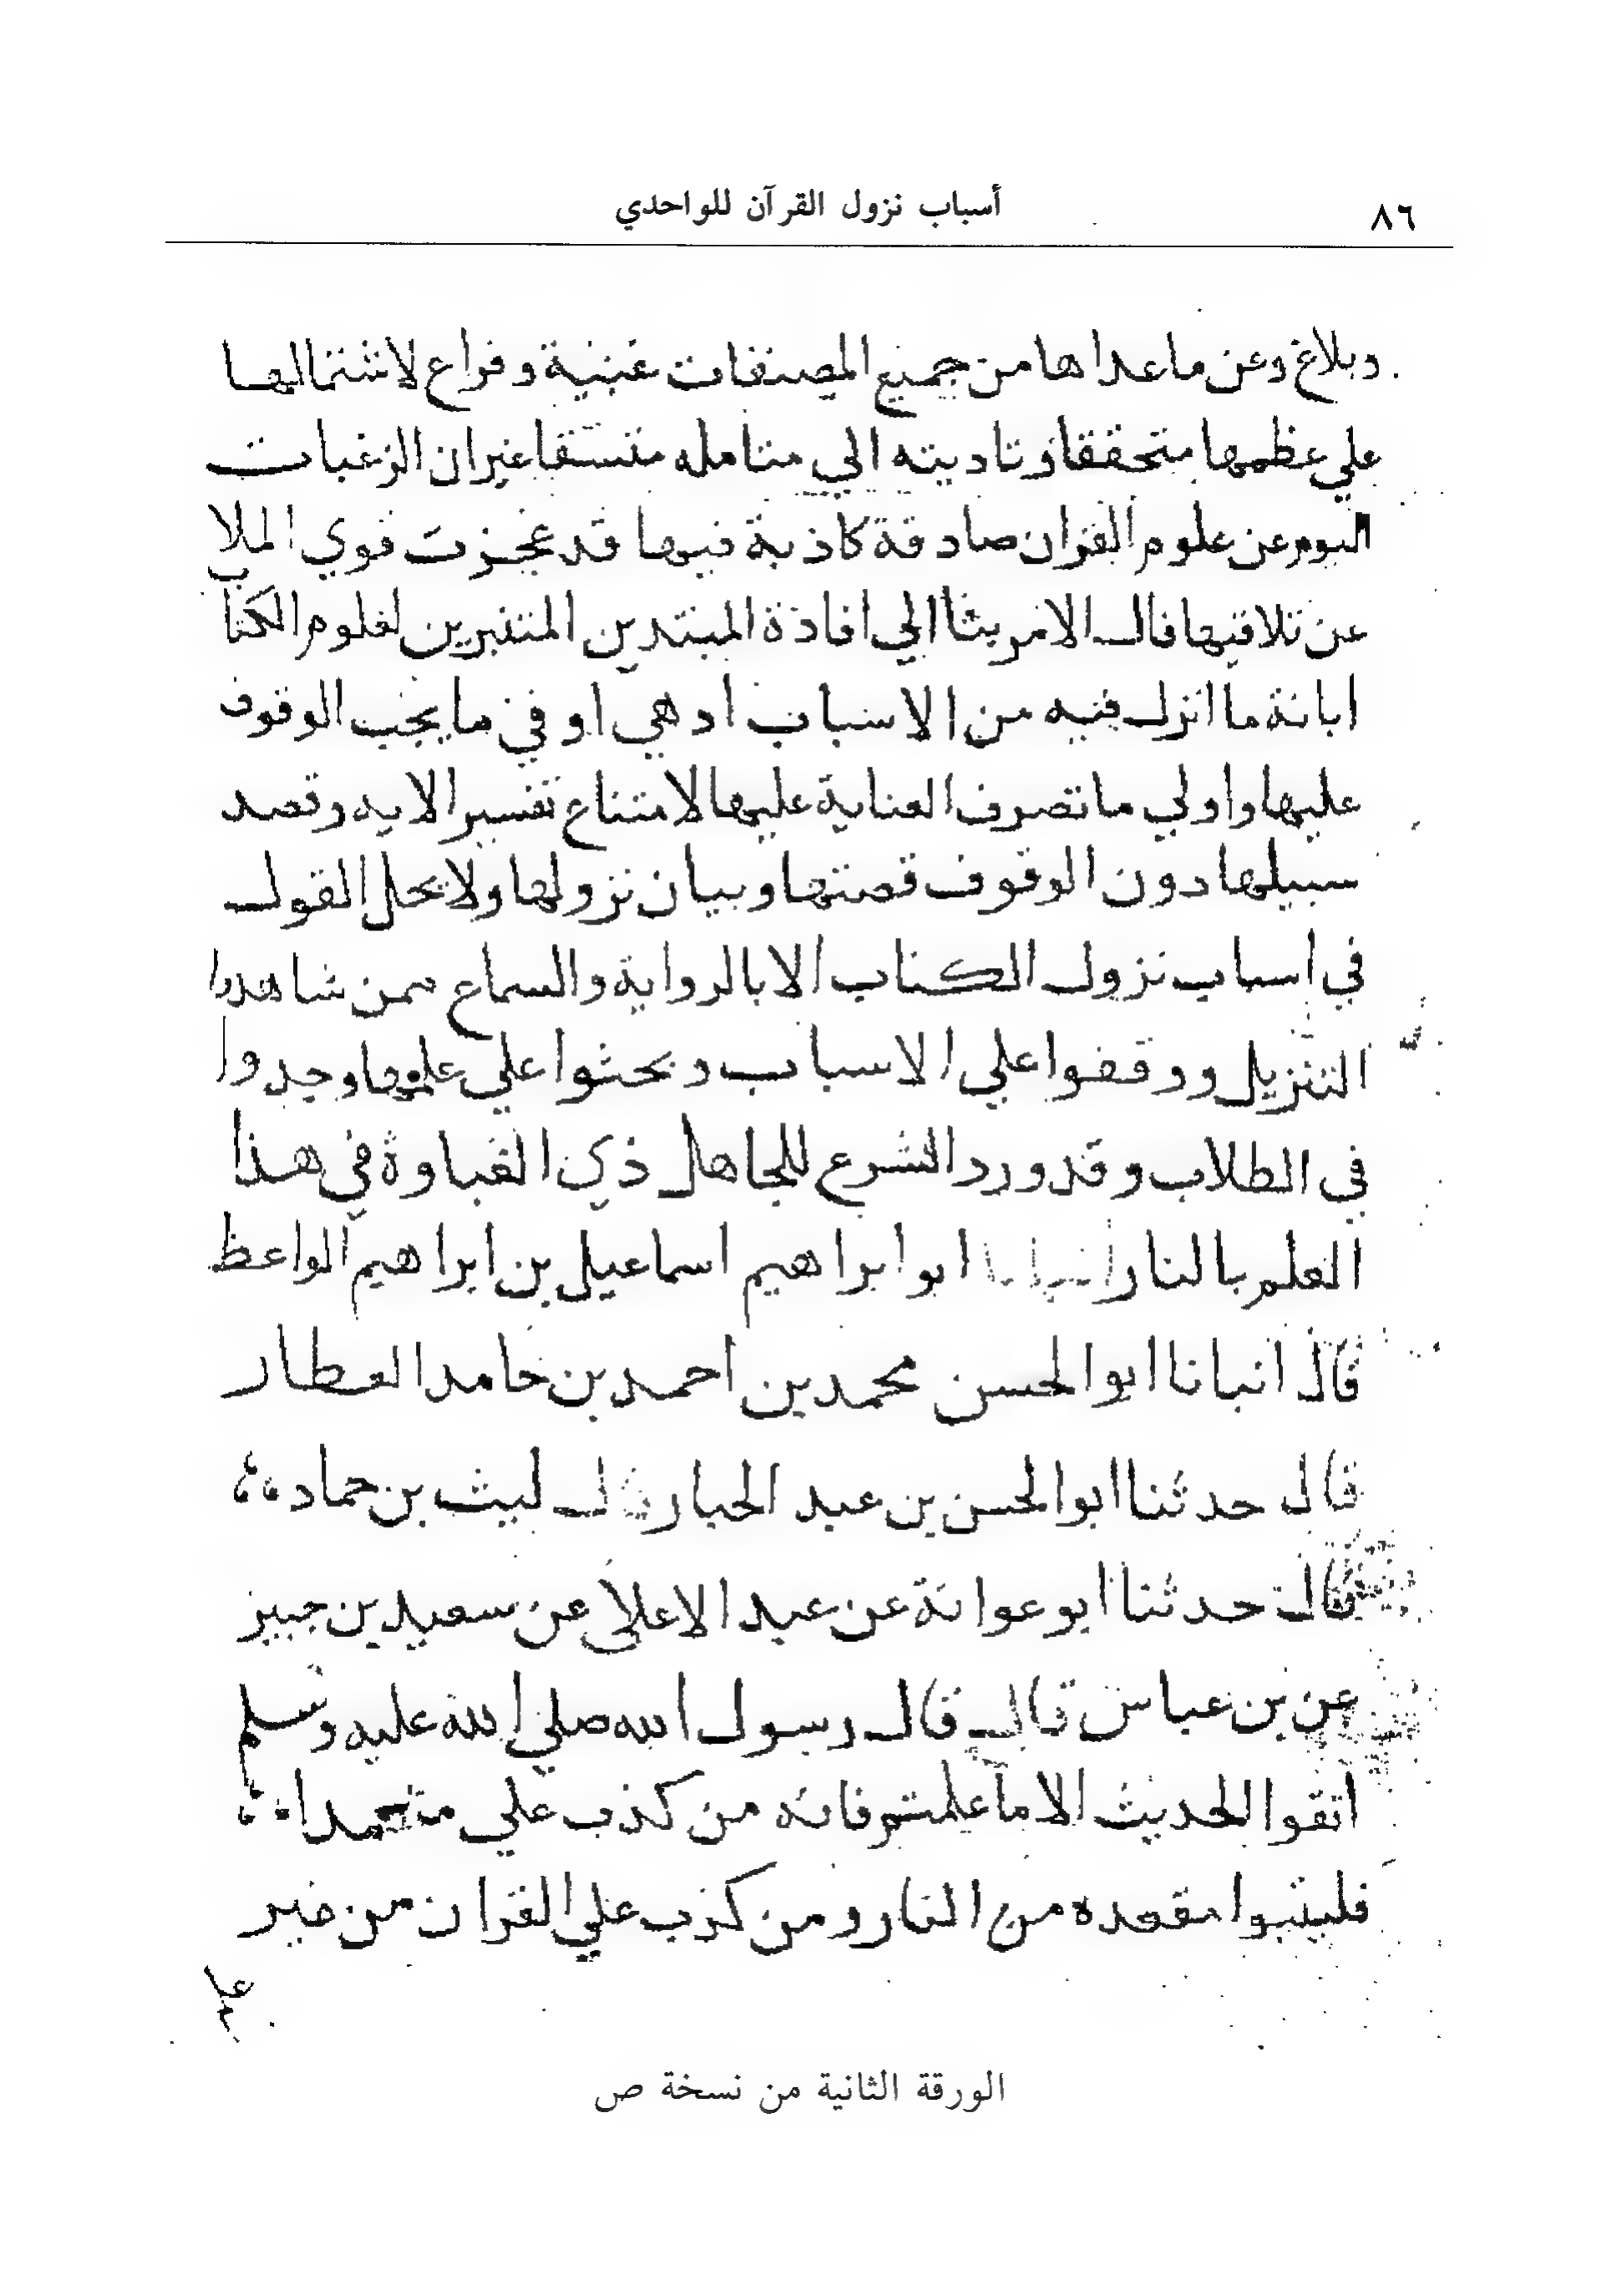 ٨٦
أسباب نزول القرآن للواحدي
وبلاغ وعن ما عداها من جميع المصنفات غنية وفراغ لاشتمالها
علي عظمها متحققا وتاديته الي متامله متسقا غير ان الرغبات
اليوم عن علوم القران صادقة كاذبة فيها قد عجزت قوي الملا
عن تلافيها فال الامر بنا الي افادة المبتدين المتسترين لعلوم الكتاب
ابانة ما انزل فيه من الاسباب اذ هي اوفي ما يجب الوقوف
عليها واولي ما تصرف العناية عليها لامتناع تفسير الايه وقصد
سبيلها دون الوقوف قصتها وبيان نزولها ولا يحل القول
في اسباب نزول الكتاب الا بالرواية والسماع ممن شاهدوا
التنزيل ووقفوا علي الاسباب وبحثوا علي علمها وجدوا
في الطلاب وقد ورد الشرع للجاهل ذي الغباوة في هذا
العلم بالنار انبانا ابو ابراهيم اسماعيل بن ابراهيم الواعظ
قال انبانا ابو الحسن محمد بن احمد بن حامد العطار
قال حدثنا ابو الحسن بن عبد الجبار قال ليث بن حماد
قال حدثنا ابو عوانة عن عبد الاعلا عن سعيد بن جبير
عن بن عباس قال قال رسول الله صلي الله عليه وسلم
اتقوا الحديث الا ما علمتم فانه من كذب علي متعمدا
فليتبوا مقعده من النار ومن كذب علي القران من غير
الورقة الثانية من نسخة ص